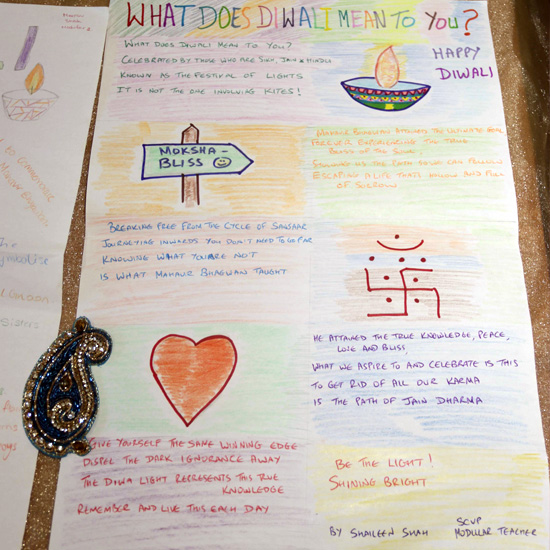 WHAT DOES DIWALI MEAN TO YOU?
WHAT DOES DIWALI MEAN TO YOU?
CELEBRATED BY THOSE WHO ARE SIKH, JAIN & HINDU
KNOWN AS THE FESTIVAL OF LIGHTS
IT IS NOT THE ONE INVOLVING KITES!
HAPPY
DIWALI
MOKSHA-
BLISS
MAHAVIR BHAGWAN ATTAINED THE ULTIMATE GOAL
FOREVER EXPERIENCING THE TRUE
BLISS OF THE SOUL
SHOWING US THE PATH WE CAN FOLLOW
ESCAPING A LIFE THAT'S HOLLOW AND FULL
OF SORROW
BREAKING FREE FROM THE CYCLE OF SANSAAR
JOURNEYING INWARDS YOU DON'T NEED TO GO FAR
KNOWING WHAT YOU ARE NOT
IS WHAT MAHAVIR BHAGWAN TAUGHT
HE ATTAINED THE TRUE KNOWLEDGE, PEACE,
LOVE AND BLISS,
WHAT WE ASPIRE TO AND CELEBRATE IS THIS
TO GET RID OF ALL OUR KARMA
IS THE PATH OF JAIN DHARMA
GIVE YOURSELF THE SAME WINNING EDGE
DISPEL THE DARK IGNORANCE AWAY
THE DIWA LIGHT REPRESENTS THIS TRUE
KNOWLEDGE
REMEMBER AND LIVE THIS EACH DAY
BE THE LIGHT!
SHINING BRIGHT
BY SHAILEEN SHAH
SCVP
MODULAR TEACHER